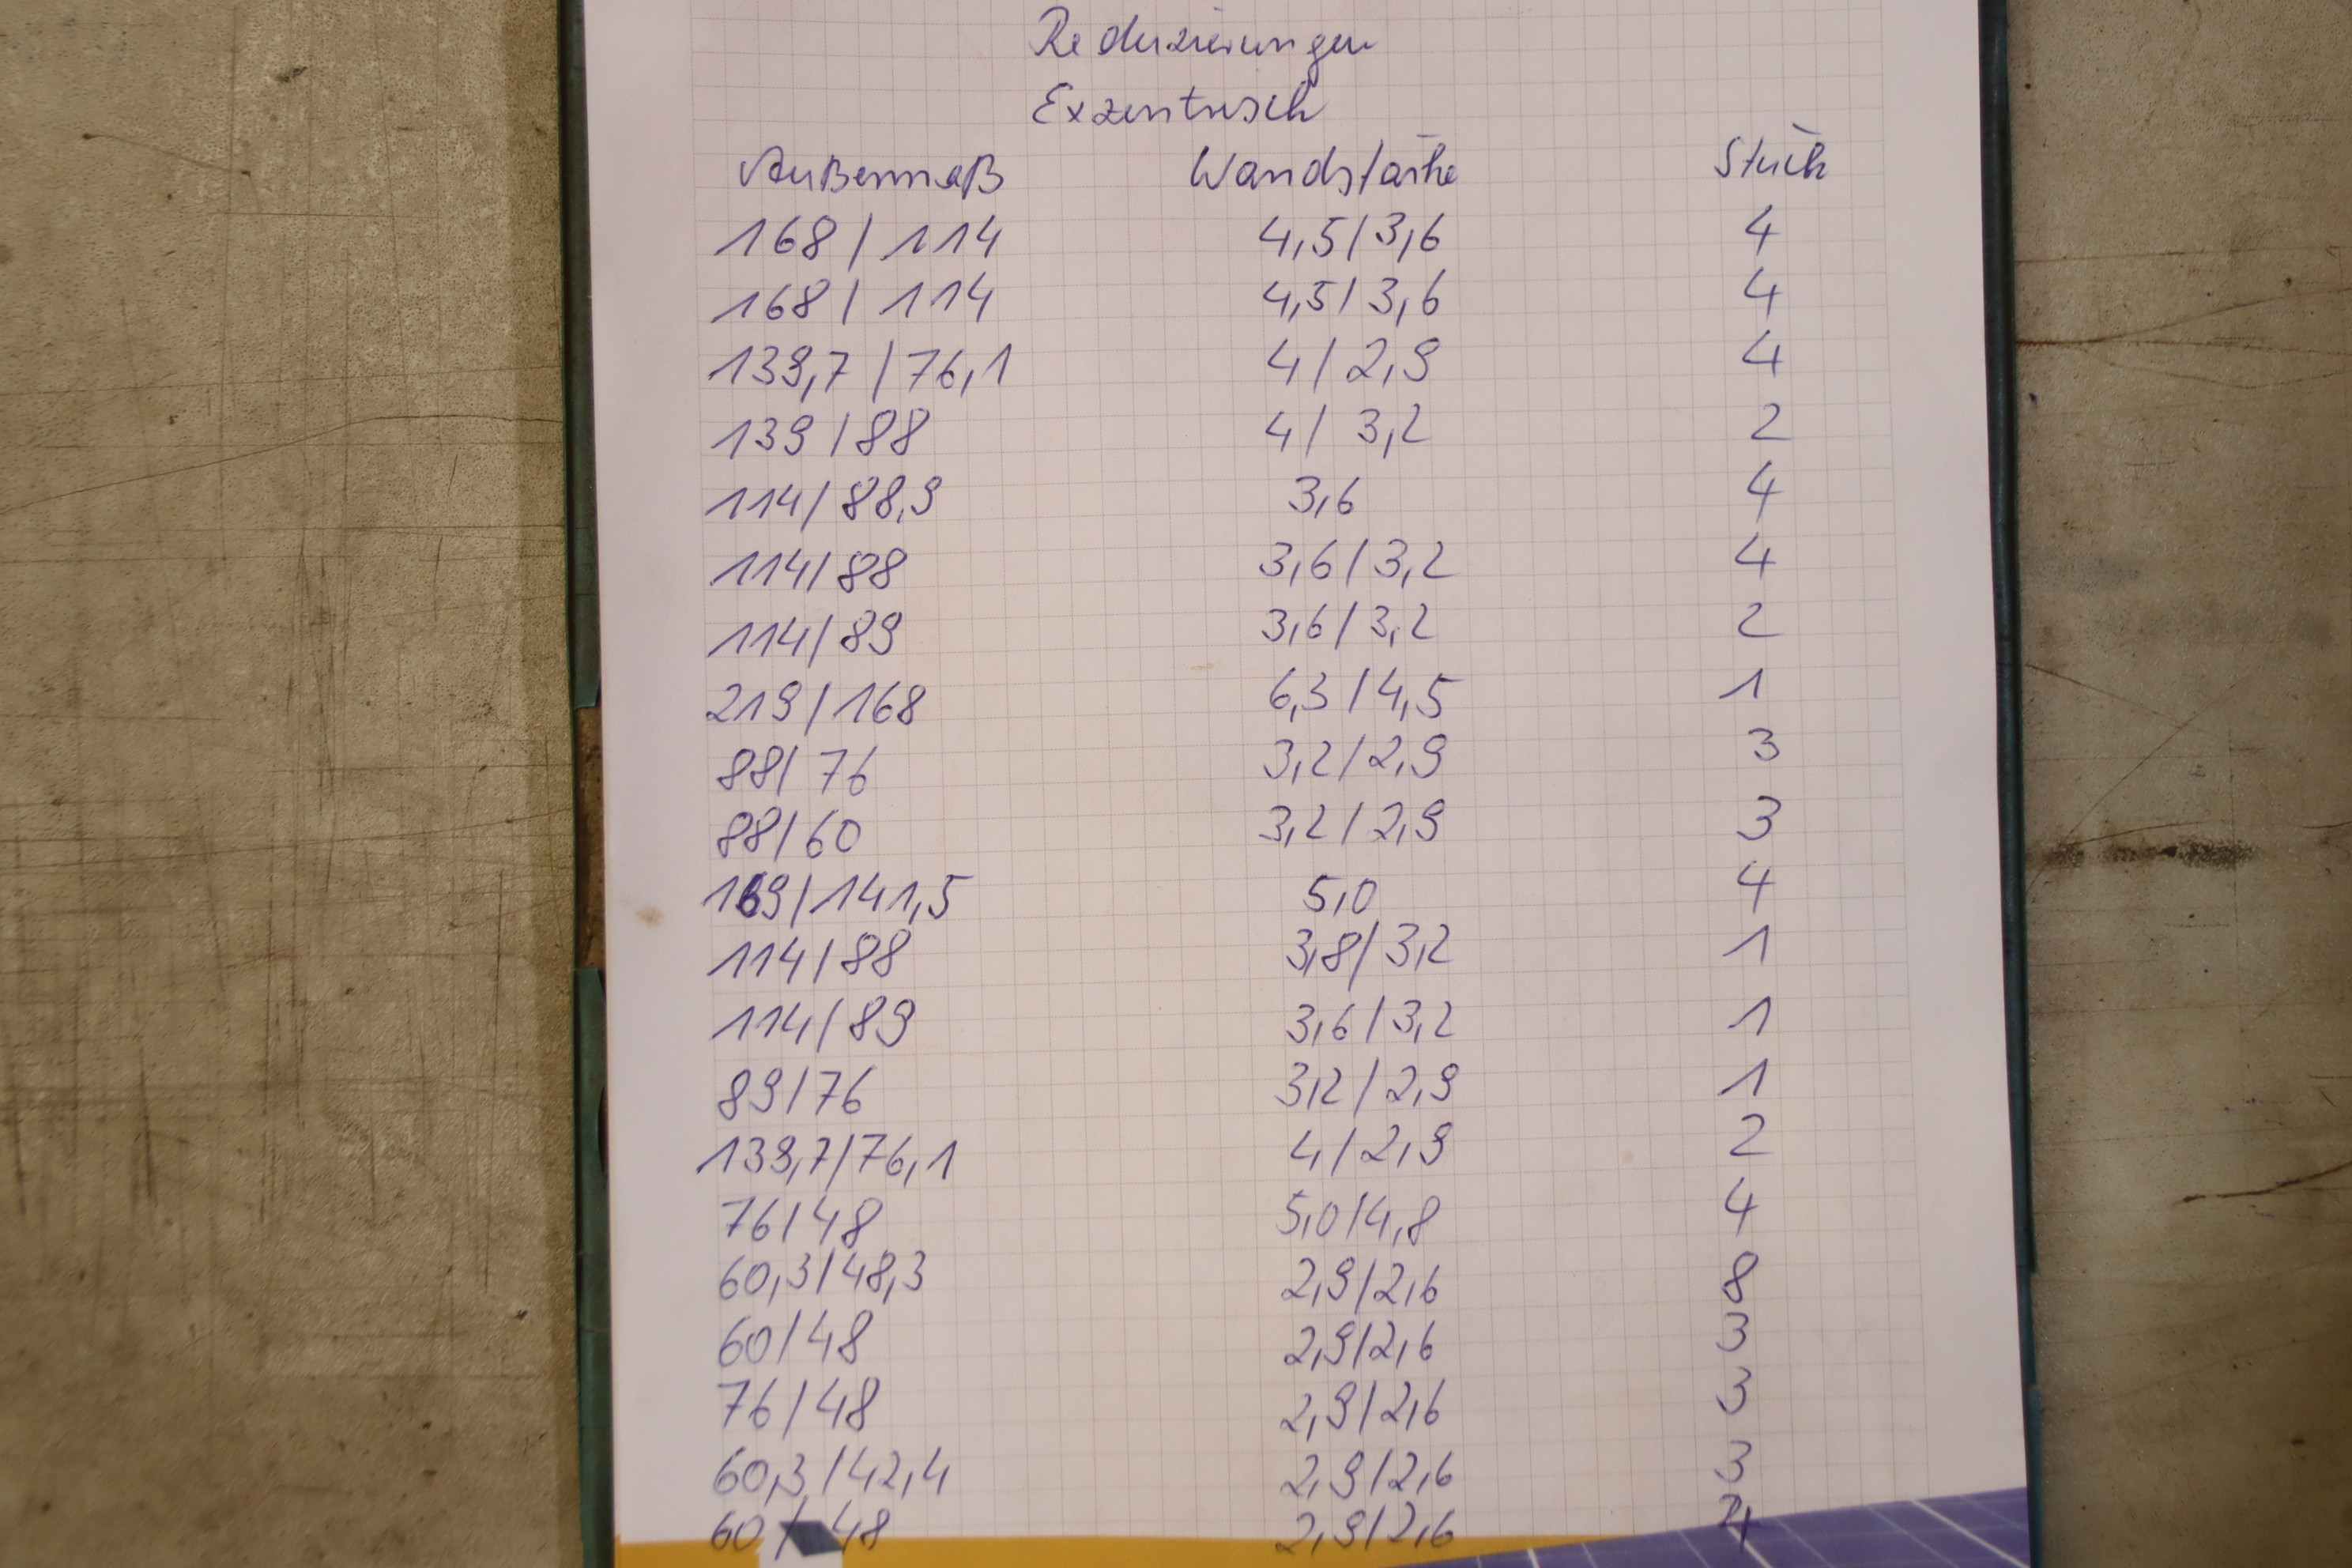 Reduzierungen
Exzentrisch
Außenmaß Wandstärke Stück
168 / 114 4,5 / 3,6 4
168 / 114 4,5 / 3,6 4
139,7 / 76,1 4 / 2,9 4
139 / 88 4 / 3,2 2
114 / 88,9 3,6 4
114 / 88 3,6 / 3,2 4
114 / 89 3,6 / 3,2 2
219 / 168 6,3 / 4,5 1
88 / 76 3,2 / 2,9 3
88 / 60 3,2 / 2,9 3
169 / 141,5 5,0 4
114 / 88 3,8 / 3,2 1
114 / 89 3,6 / 3,2 1
89 / 76 3,2 / 2,9 1
139,7 / 76,1 4 / 2,9 2
76 / 48 5,0 / 4,8 4
60,3 / 48,3 2,9 / 2,6 8
60 / 48 2,9 / 2,6 3
76 / 48 2,9 / 2,6 3
60,3 / 42,4 2,9 / 2,6 3
60 / 48 2,9 / 2,6